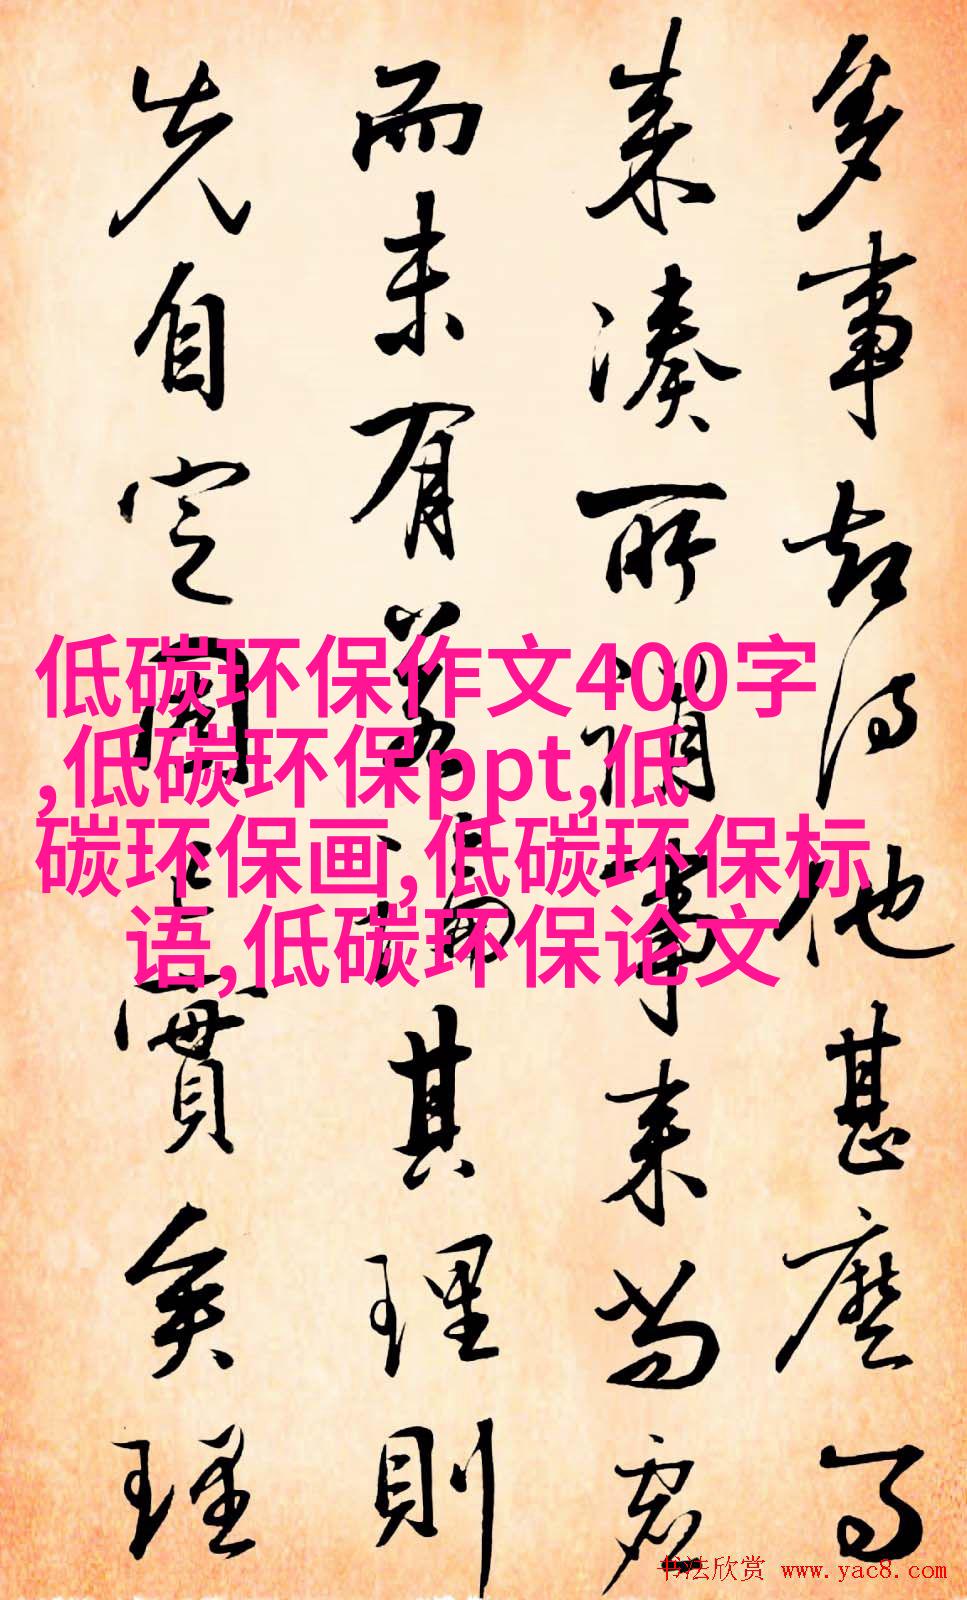 多事却得他甚麼
来凑所事来
而未有其理則
先自定實矣理
低碳环保作文400字
,低碳环保ppt,低
碳环保画,低碳环保标
语,低碳环保论文
书法欣赏 www.yac8.com